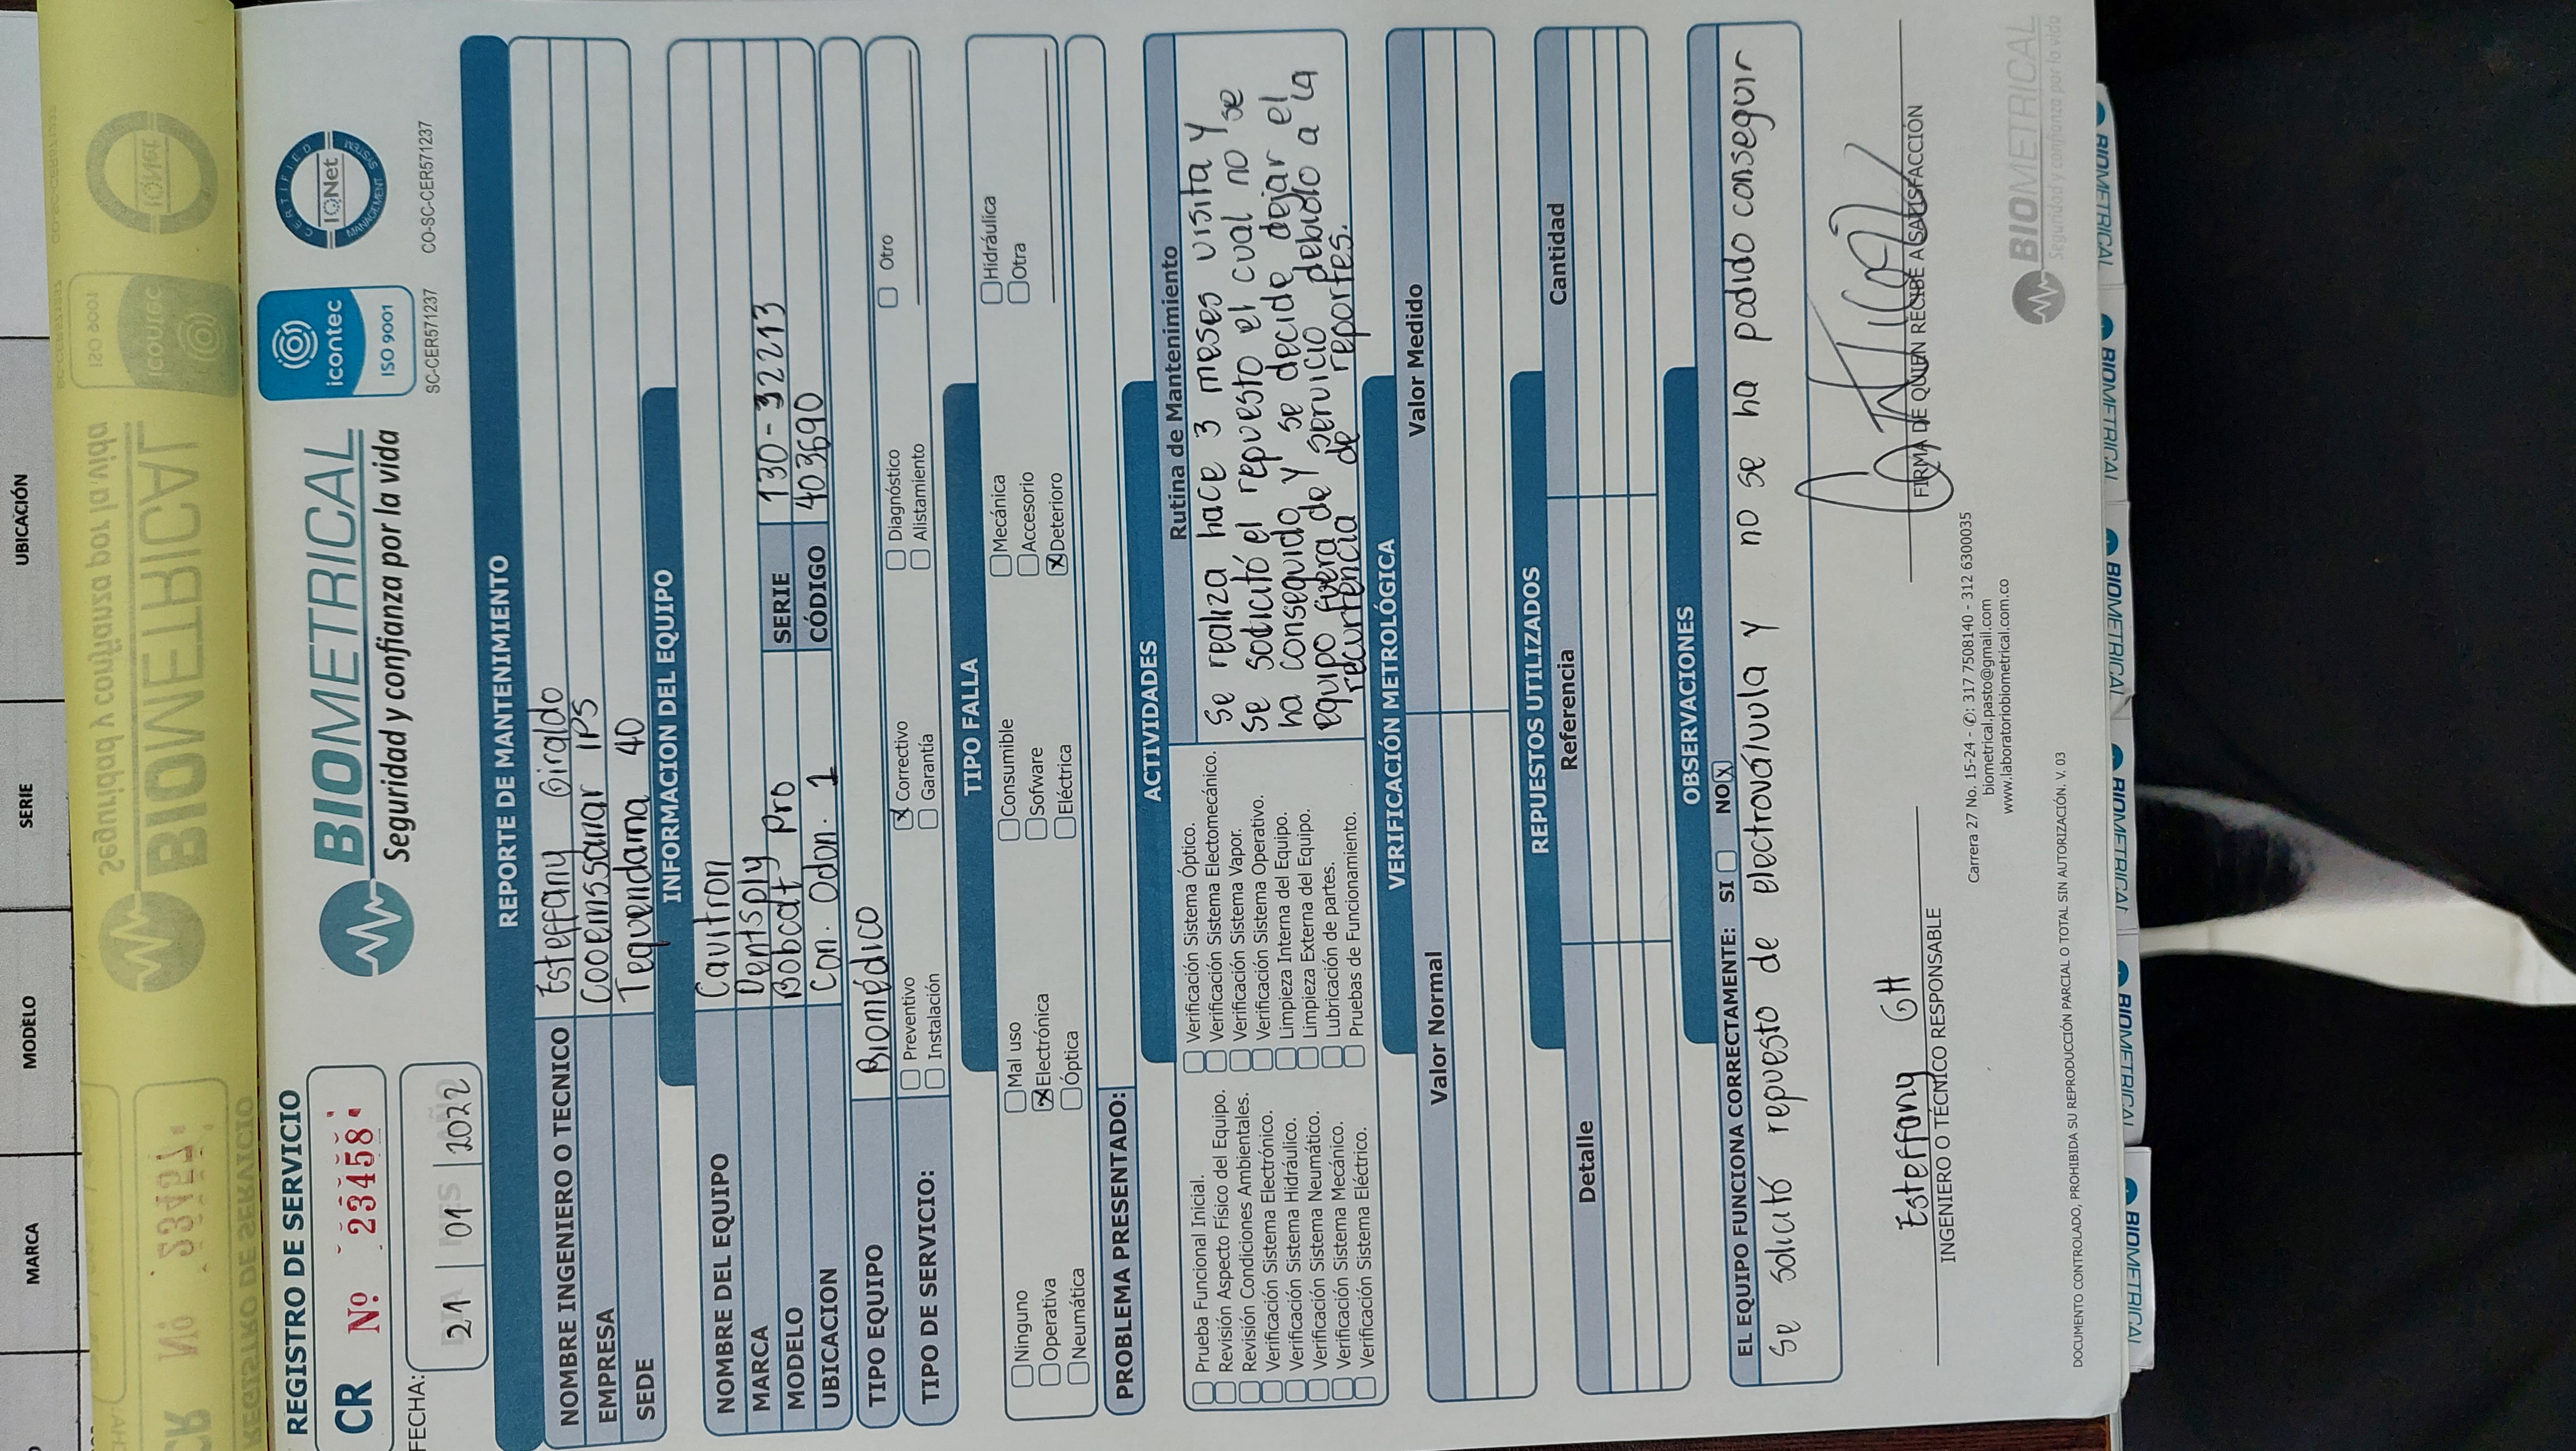 MARCA MODELO SERIE UBICACIÓN
SC-CER571237 CO-SC-CER571237
FECHA:
Seguridad y confianza por la vida
ISO 9001
CR Nº 23457
BIOMETRICAL
icontec
IQNet
REGISTRO DE SERVICIO
REGISTRO DE SERVICIO
CR Nº 23458
BIOMETRICAL
Seguridad y confianza por la vida
icontec
ISO 9001
SC-CER571237
CERTIFIED
IQNet
MANAGEMENT SYSTEM
CO-SC-CER571237
FECHA:
DIA MES AÑO
21 01 2022
REPORTE DE MANTENIMIENTO
NOMBRE INGENIERO O TECNICO Esteffany Giraldo
EMPRESA Cooemssanar IPS
SEDE Tequendama 40
INFORMACION DEL EQUIPO
NOMBRE DEL EQUIPO Cavitron
MARCA Dentsply
MODELO Bobcat Pro SERIE 130-32213
UBICACION Con. Odon. 1 CÓDIGO 403690
TIPO EQUIPO Biomédico
TIPO DE SERVICIO:
Preventivo X Correctivo Diagnóstico Otro
Instalación Garantía Alistamiento
TIPO FALLA
Ninguno Mal uso Consumible Mecánica Hidráulica
Operativa X Electrónica Sofware Accesorio Otra
Neumática Óptica Eléctrica X Deterioro
PROBLEMA PRESENTADO:
ACTIVIDADES
Prueba Funcional Inicial.
Revisión Aspecto Físico del Equipo.
Revisión Condiciones Ambientales.
Verificación Sistema Electrónico.
Verificación Sistema Hidráulico.
Verificación Sistema Neumático.
Verificación Sistema Mecánico.
Verificación Sistema Eléctrico.
Verificación Sistema Óptico.
Verificación Sistema Electomecánico.
Verificación Sistema Vapor.
Verificación Sistema Operativo.
Limpieza Interna del Equipo.
Limpieza Externa del Equipo.
Lubricación de partes.
Pruebas de Funcionamiento.
Rutina de Mantenimiento
Se realiza hace 3 meses visita y
se solicitó el repuesto el cual no se
ha conseguido y se decide dejar el
equipo fuera de servicio debido a la
recurrencia de reportes.
VERIFICACIÓN METROLÓGICA
Valor Normal Valor Medido
REPUESTOS UTILIZADOS
Detalle Referencia Cantidad
OBSERVACIONES
EL EQUIPO FUNCIONA CORRECTAMENTE: SI NO X
Se solicitó repuesto de electroválvula y no se ha podido conseguir
Esteffany GH
INGENIERO O TÉCNICO RESPONSABLE
FIRMA DE QUIEN RECIBE A SATISFACCIÓN
Carrera 27 No. 15-24 - ✆: 317 7508140 - 312 6300035
biometrical.pasto@gmail.com
www.laboratoriobiometrical.com.co
BIOMETRICAL
Seguridad y confianza por la vida
DOCUMENTO CONTROLADO, PROHIBIDA SU REPRODUCCIÓN PARCIAL O TOTAL SIN AUTORIZACIÓN. V. 03
BIOMETRICAL BIOMETRICAL BIOMETRICAL BIOMETRICAL BIOMETRICAL BIOMETRICAL